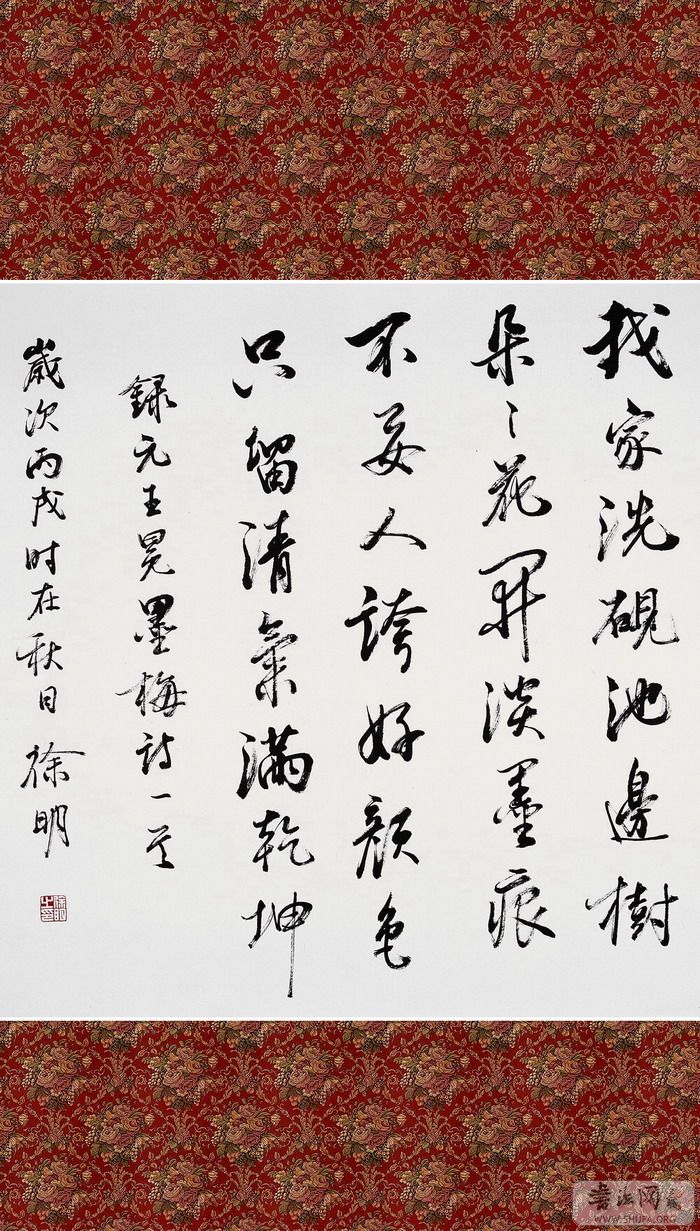 我家洗硯池邊樹
朵々花開淡墨痕
不要人誇好顏色
只留清氣滿乾坤
錄元王冕墨梅詩一首
歲次丙戌时在秋日徐明
徐明之印
書法网
WWW.SHUFA.ORG